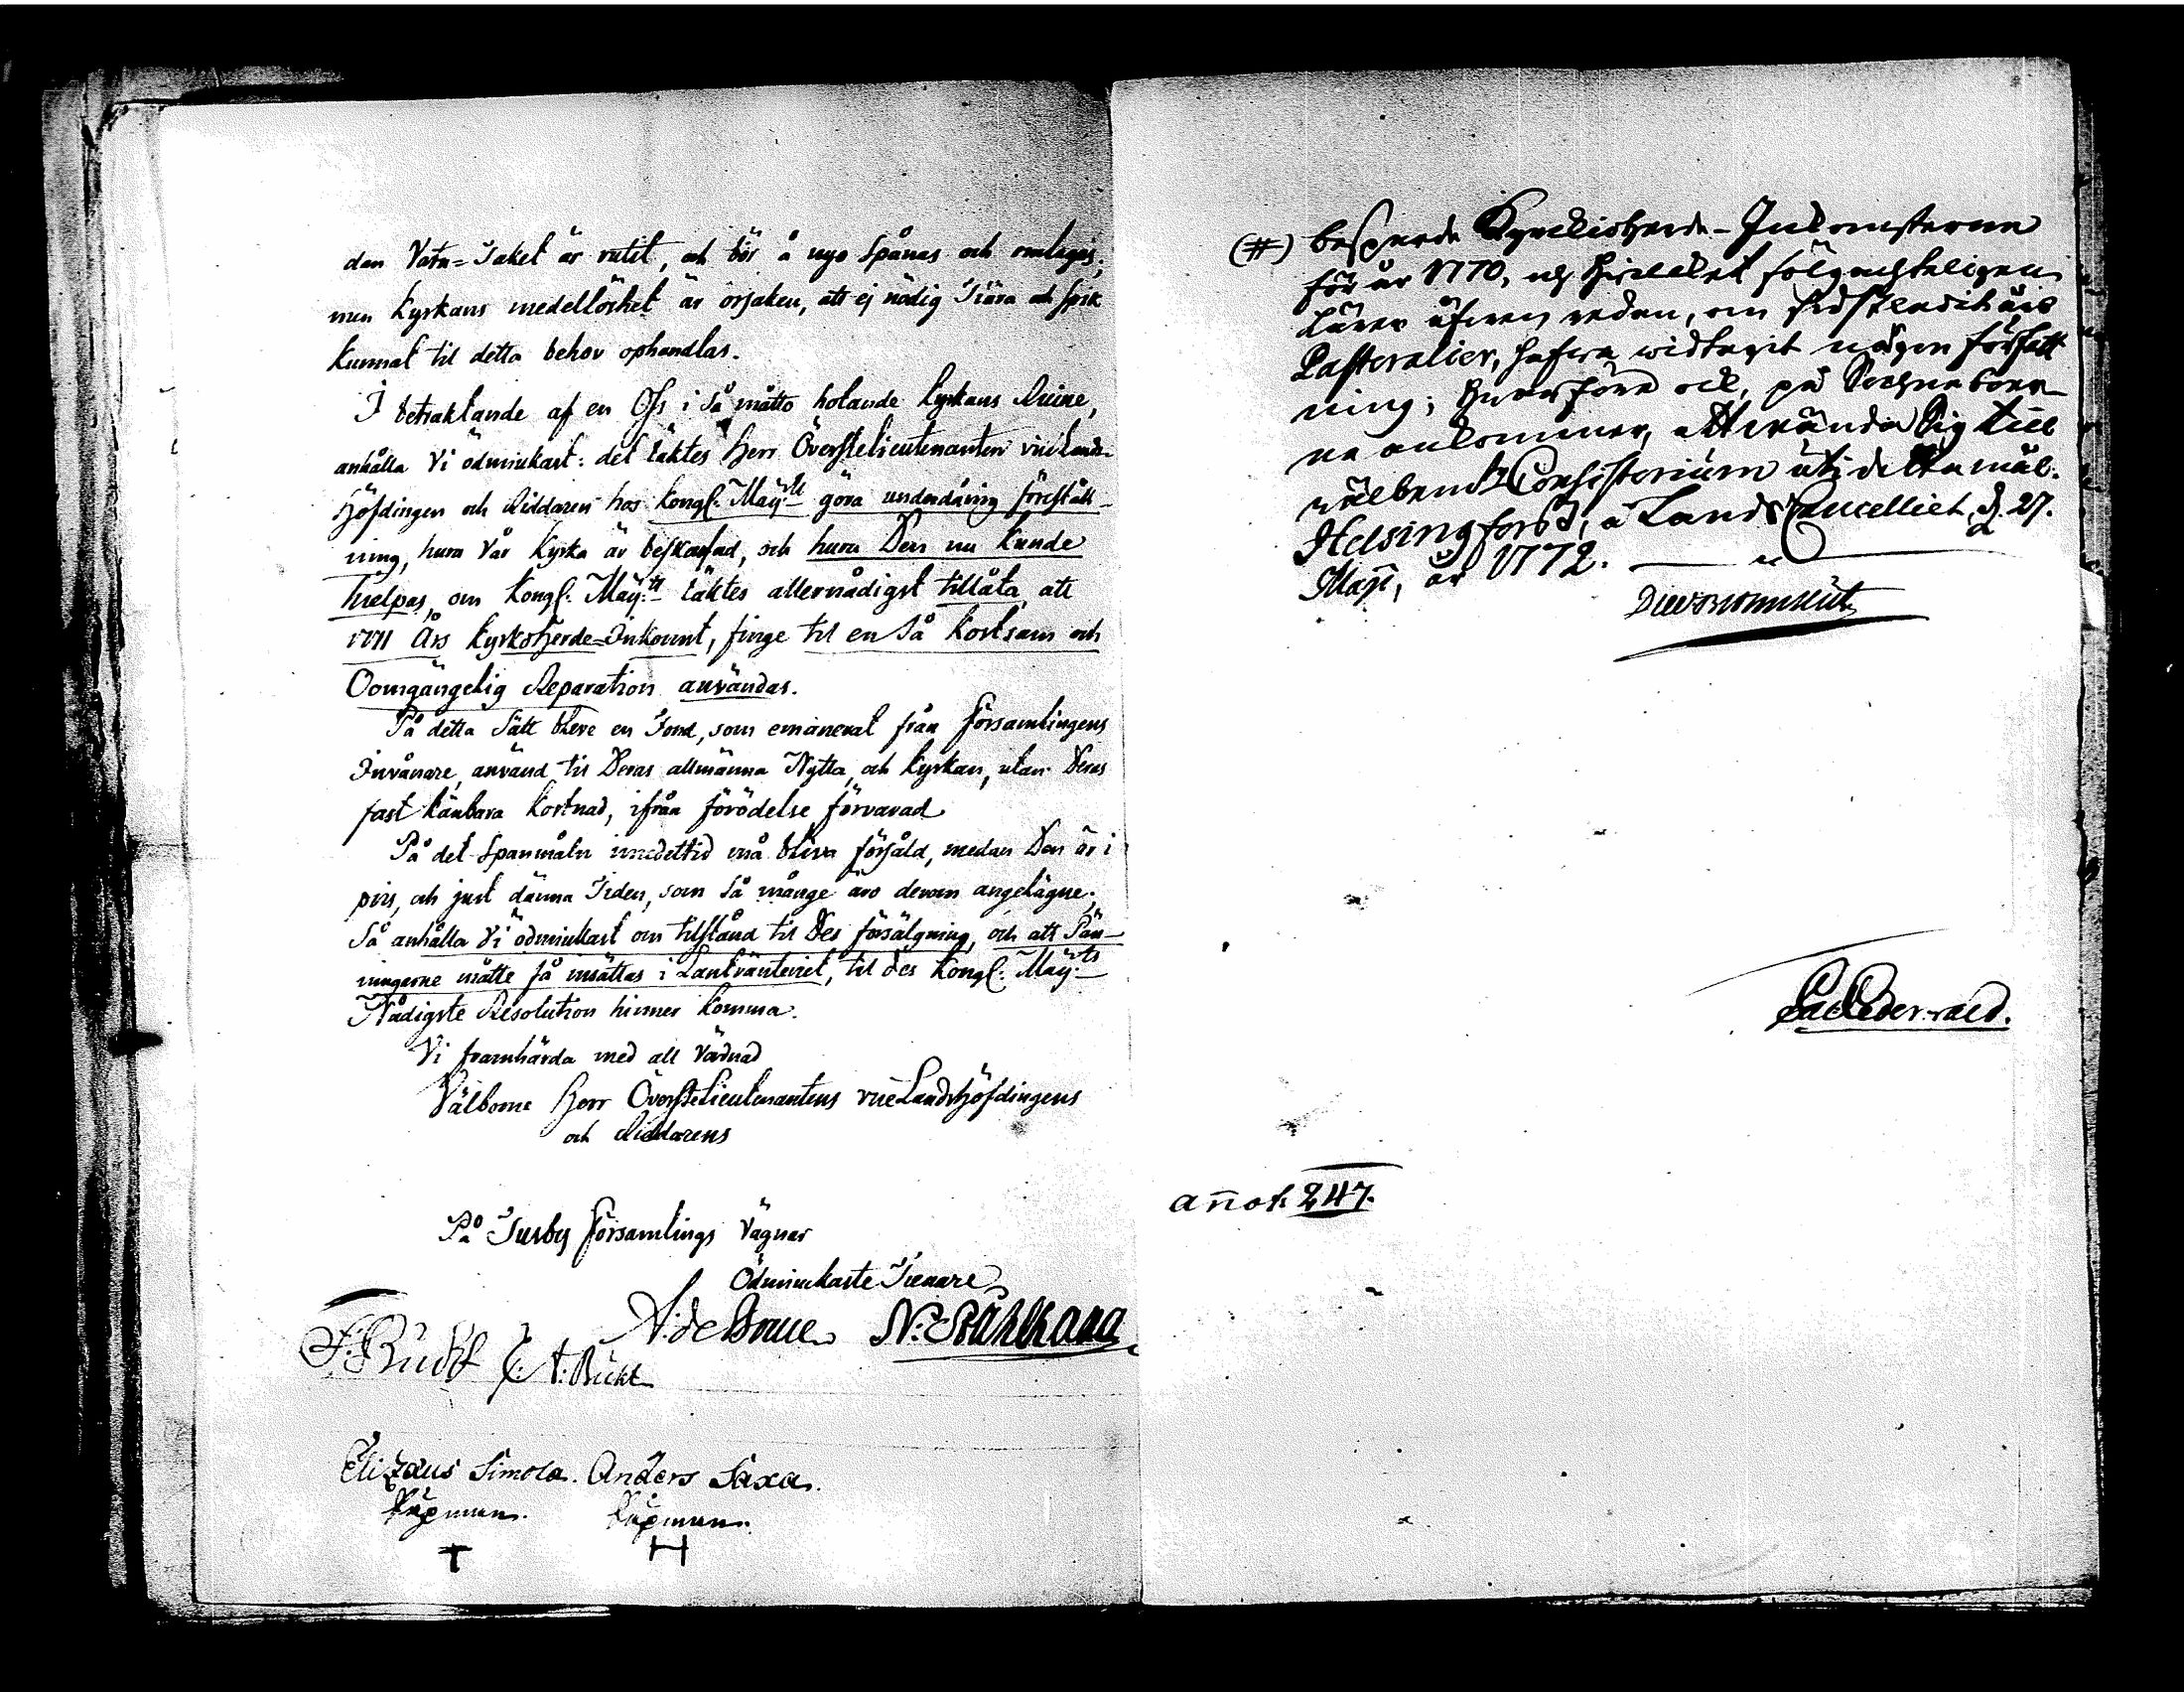 dan Vatn=Taket är rutit, och bör å nyo Spånas och omlagas,
men Kyrkans medellöshet är orsaken, att ej nödig Tiära och spik
kunnat til detta behov ophandlas.
I betraktande af en Oss i så måtto hotande Kyrkans Ruine,
anhålla Vi ödmiukast: det täktes Herr Överstelieutenanten vice Lands-
Höfdingen och Riddaren hos Kongl: Maÿ:tt göra underdånig föreställ-
ning, huru Vår Kyrka är beskaffad, och huru Den nu kunde
hielpas, om Kongl: Maÿ:tt täktes allernådigst tillåta, att
1771 Års Kyrkoherde=Inkomst, finge til en så kostsam och
Oomgängelig Reparation användas.
På detta Sätt bleve en Fond, som emanerat från Församlingens
Invånare, använd til Deras allmänna Nytta, och Kyrkan, utan Deras
fast känbara Kostnad, ifrån förödelse förvarad
På det Spanmåln imedlertid må bliva försåld, medan Den är i
pris, och just dänna Tiden, som så månge äro derom angelägne;
Så anhålla Vi ödmiukast om tilstånd til Des försälgning, och att Pän-
ningarne måtte få insättas i Lantränteriet, til des Kongl: Maÿ:ts
Nådigste Resolution hinner komma.
Vi framhärda med all Vördnad
Välborne Herr Överstelieutenantens vice Landshöfdingens
och Riddarens
På Tusby Församlings Vägnar
Ödmiukaste Tienare
A: de Bruce N: Stålhana
F: Bückt C: A: Bückt
Elizæus Simola. Anders Saxa.
T H
(#) besparde Kyrckioherde-Inkomsterne
för år 1770, och hwilcket följachteligen
lärer äfwen redan, om sidstledit års
Pastoralier, hafwa widtagit någon författ
ning; hwarföre ock, på Sochneboer-
ne ankommer, att wända Sig till
wälbem:te Consistorium uti detta mål.
Helsingfors, å Lands Cancelliet d. 27.
Maji, år 1772.
Cederwald.
añot 247.